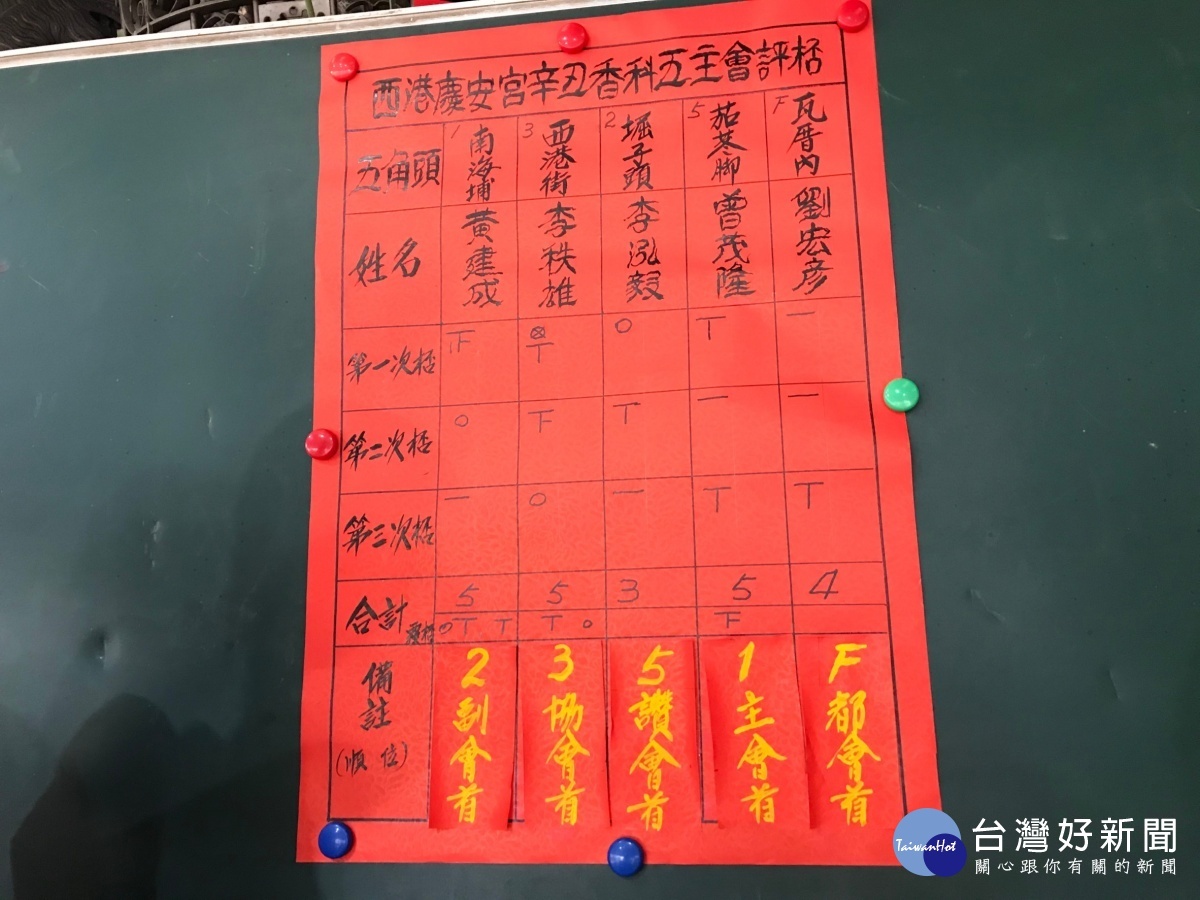 西港慶安宮辛丑香科五主會評桮
五角頭 1 南海埔 3 西港街 2 堀子頭 5 茄苳脚 F 瓦厝內
姓名 黃建成 李秩雄 李泓毅 曾茂隆 劉宏彥
第一次桮 下 ⊗ 丅 ○ 丅 一
第二次桮 ○ 下 丅 一 一
第三次桮 一 ○ 一 丅 丅
合計 5 5 3 5 4
○ 丅 丅 丅 ○ 下
備註(順位) 2副會首 3協會首 5讚會首 1主會首 F都會首
TaiwanHot 台灣好新聞
關心跟你有關的新聞